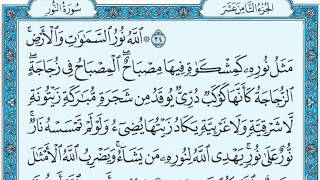 الجُزْءُ الثَّامِنَ عَشَرَ
سُورَةُ النُّورِ
٣٤ ۞ ٱللَّهُ نُورُ ٱلسَّمَٰوَٰتِ وَٱلْأَرْضِ ۚ
مَثَلُ نُورِهِۦ كَمِشْكَوٰةٍ فِيهَا مِصْبَاحٌ ۖ ٱلْمِصْبَاحُ فِى زُجَاجَةٍ ۖ
ٱلزُّجَاجَةُ كَأَنَّهَا كَوْكَبٌ دُرِّىٌّ يُوقَدُ مِن شَجَرَةٍ مُّبَٰرَكَةٍ زَيْتُونَةٍ
لَّا شَرْقِيَّةٍ وَلَا غَرْبِيَّةٍ يَكَادُ زَيْتُهَا يُضِىٓءُ وَلَوْ لَمْ تَمْسَسْهُ نَارٌ ۚ
نُّورٌ عَلَىٰ نُورٍ ۗ يَهْدِى ٱللَّهُ لِنُورِهِۦ مَن يَشَآءُ ۚ وَيَضْرِبُ ٱللَّهُ ٱلْأَمْثَٰلَ